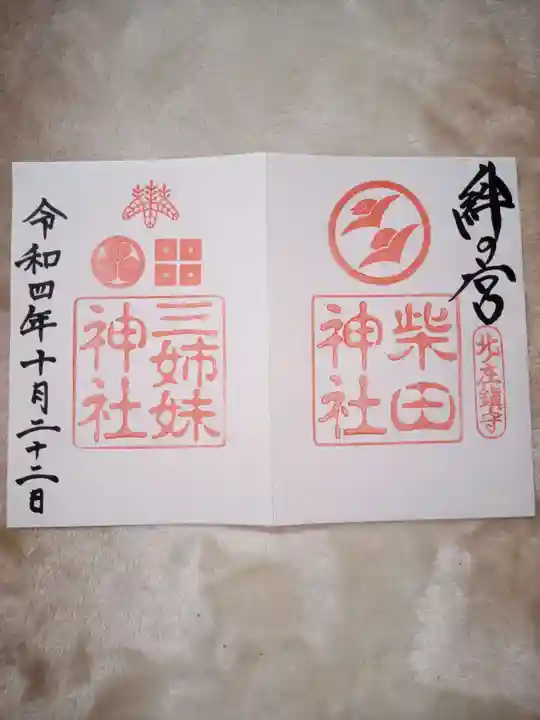 絆の宮
北庄鎮守
柴田
神社
三姉妹
神社
令和四年十月二十二日